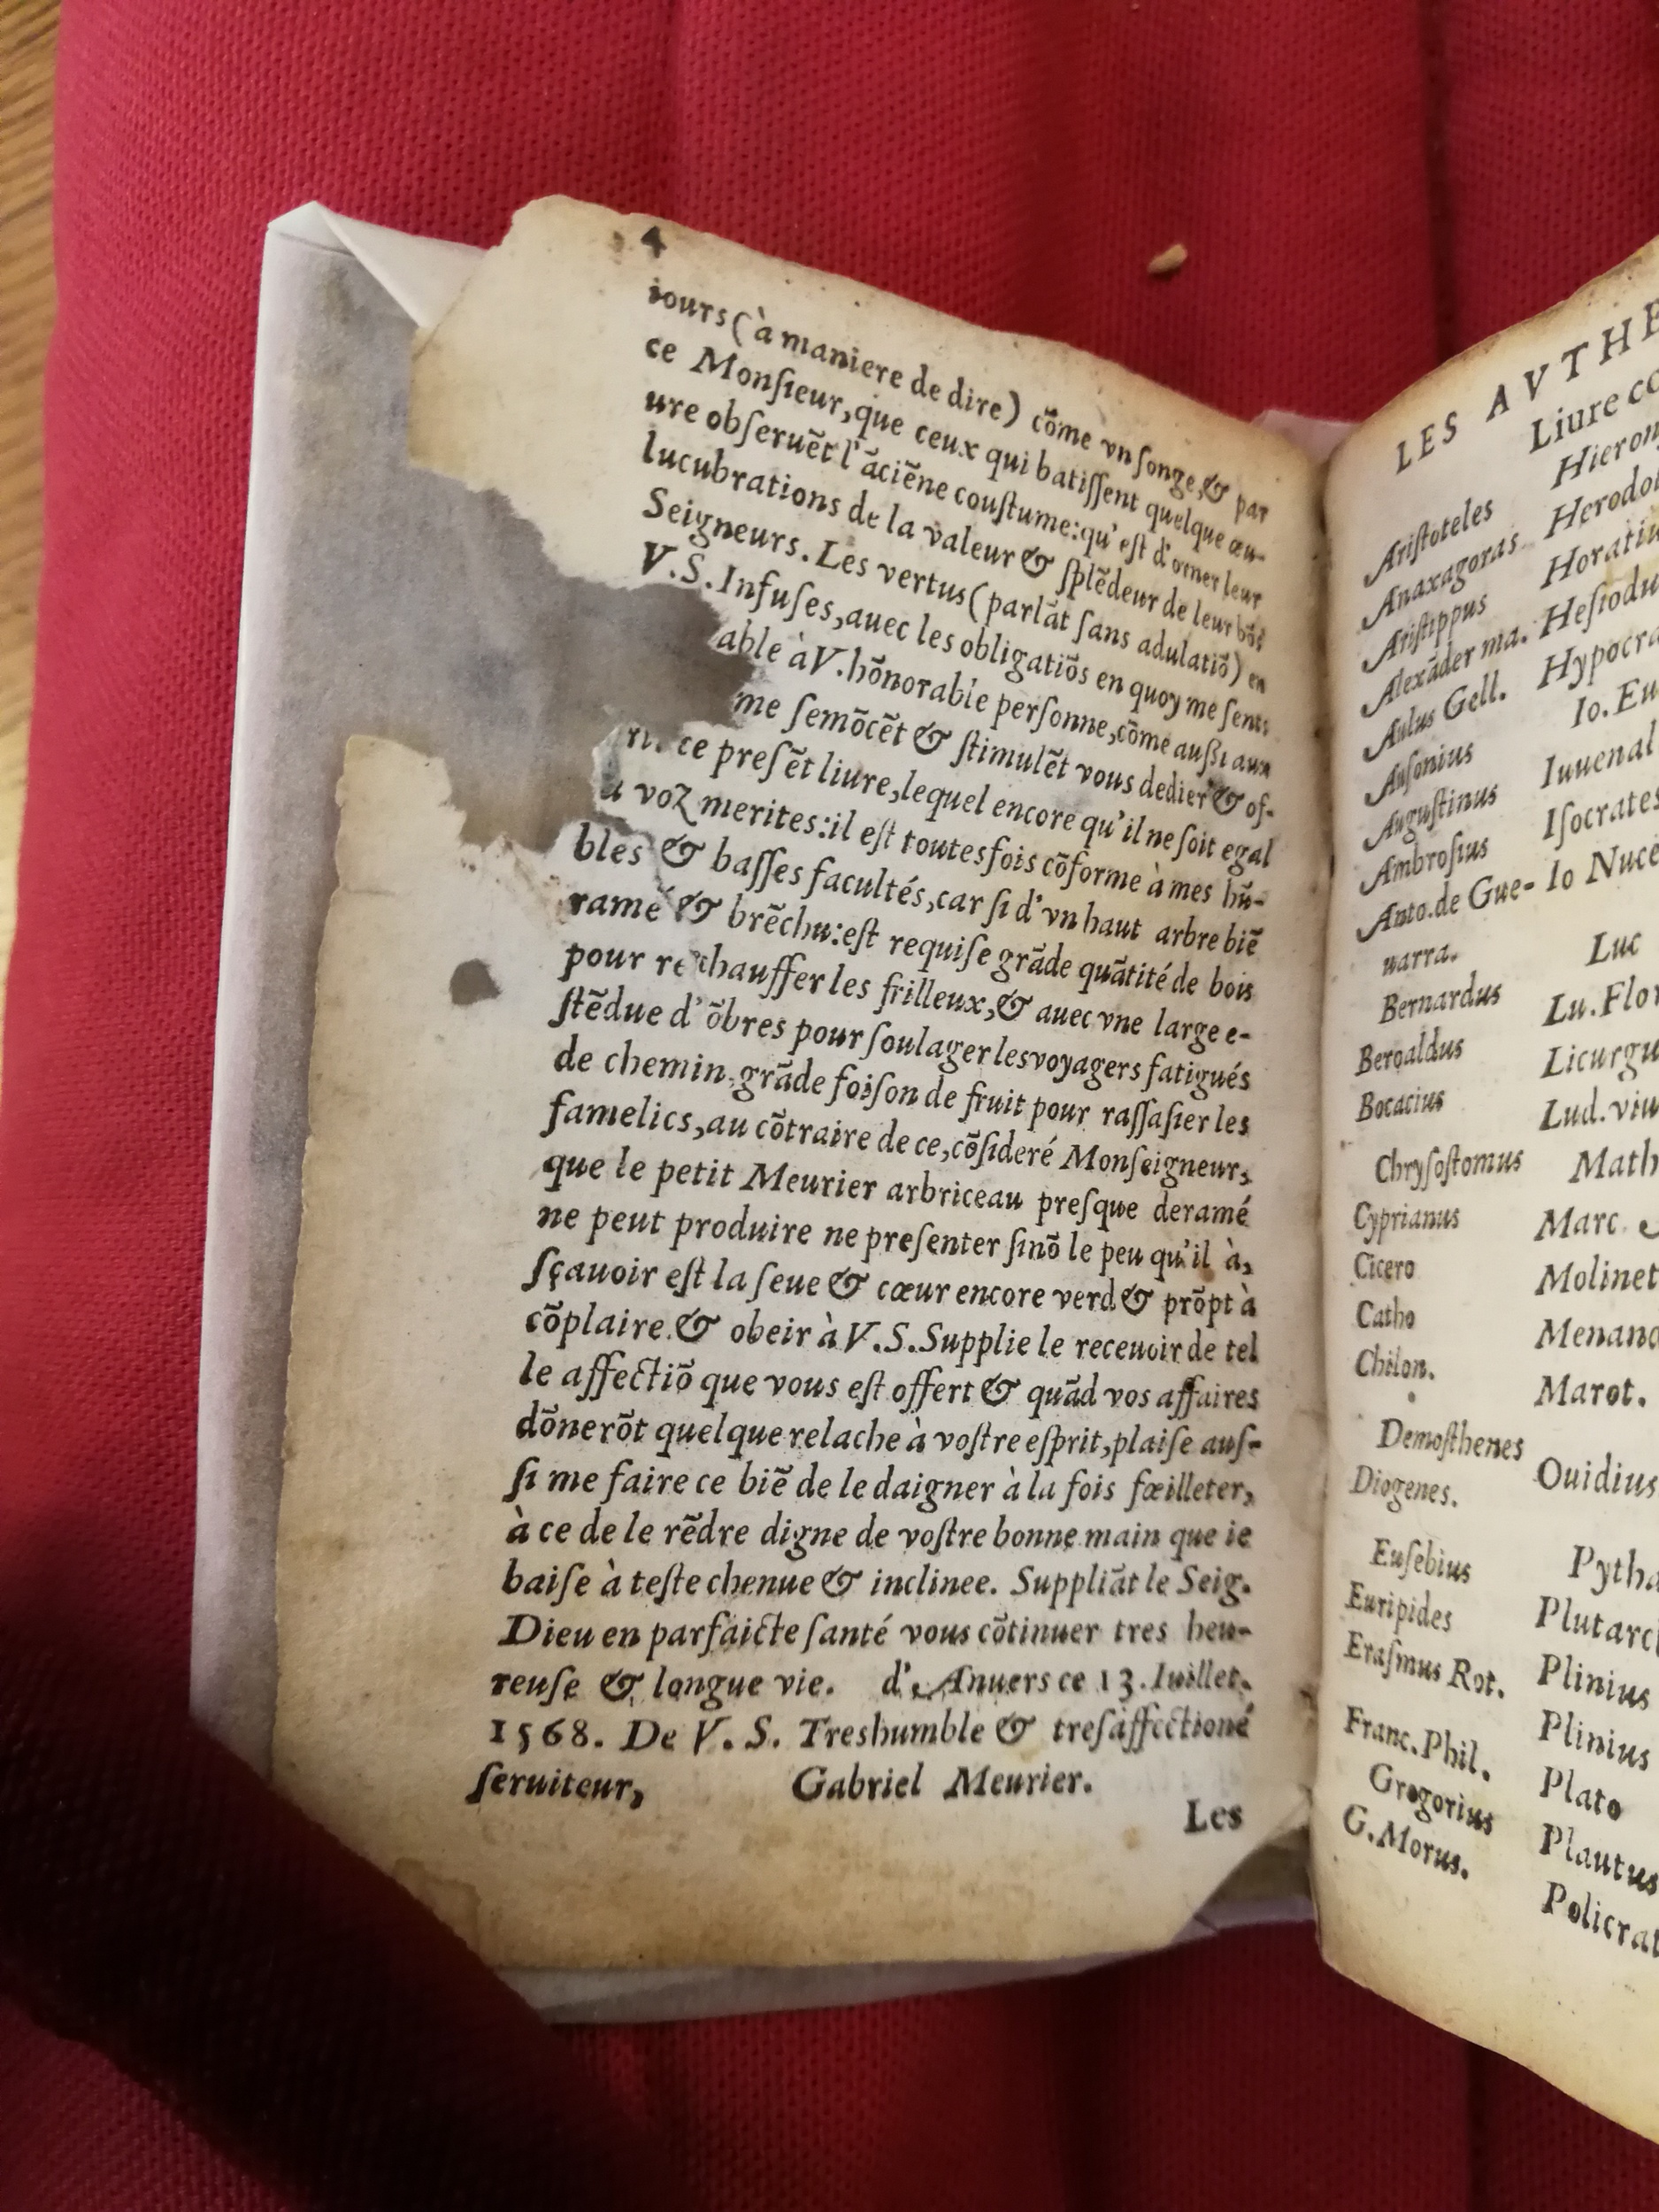 4
iours (à maniere de dire) cõme vn ſonge, & par
ce Monſieur, que ceux qui batiſſent quelque œu-
ure obſeruẽt l'ãciẽne couſtume: qu'eſt d'orner leur
lucubrations de la valeur & ſplẽdeur de leur bõs
Seigneurs. Les vertus (parlãt ſans adulatiõ) en
V. S. Infuſes, auec les obligatiõs en quoy me ſens
able à V. hõnorable perſonne, cõme auſsi aux
me ſemõcẽt & ſtimulẽt vous dedier & of-
ce preſẽt liure, lequel encore qu'il ne ſoit egal
voz merites: il eſt toutesfois cõforme à mes hũ-
bles & baſſes facultés, car ſi d'vn haut arbre biẽ
ramé & brẽchu: eſt requiſe grãde quãtité de bois
pour rechauffer les frilleux, & auec vne large e-
ſtẽdue d'õbres pour ſoulager les voyagers fatigués
de chemin, grãde foiſon de fruit pour raſſaſier les
famelics, au cõtraire de ce, cõſideré Monſeigneur,
que le petit Meurier arbriceau preſque deramé
ne peut produire ne preſenter ſinõ le peu qu'il à,
ſçauoir eſt la ſeue & cœur encore verd & prõpt à
cõplaire & obeir à V. S. Supplie le receuoir de tel
le affectiõ que vous eſt offert & quãd vos affaires
dõnerõt quelque relache à voſtre eſprit, plaiſe auſ-
ſi me faire ce biẽ de le daigner à la fois fœilleter,
à ce de le rẽdre digne de voſtre bonne main que ie
baiſe à teſte chenue & inclinee. Suppliãt le Seig.
Dieu en parfaicte ſanté vous cõtinuer tres heu-
reuſe & longue vie. d'Anuers ce 13. Iuillet.
1568. De V. S. Treshumble & treſaffectioné
ſeruiteur, Gabriel Meurier.
Les
LES AVTHE
Liure co
Ariſtoteles
Anaxagoras
Ariſtippus
Alexãder ma.
Aulus Gell.
Auſonius
Auguſtinus
Ambroſius
Anto. de Gue-
uarra.
Bernardus
Beroaldus
Bocacius
Chryſoſtomus
Cyprianus
Cicero
Catho
Chilon.
Demoſthenes
Diogenes.
Euſebius
Euripides
Eraſmus Rot.
Franc. Phil.
Gregorius
G. Morus.
Hieron
Herodot
Horatiu
Heſiodu
Hypocra
Io. Eu
Iuuenal
Iſocrates
Io Nuce
Luc
Lu. Flor
Licurgu
Lud. viu
Math
Marc
Molinet
Menand
Marot.
Ouidius
Pytha
Plutarc
Plinius
Plinius
Plato
Plautus
Policrat